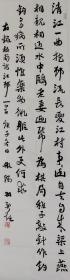 清江一曲抱邨流長夏江村事事幽自去自来梁上燕
相親相近水中鷗老妻畫紙為棋局稚子敲針作釣
鈎多病所須唯藥物微軀此外更何求
杜甫詩江邨一首